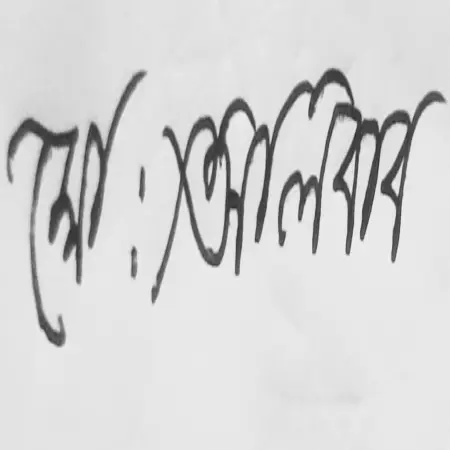 মো: আলিবাব